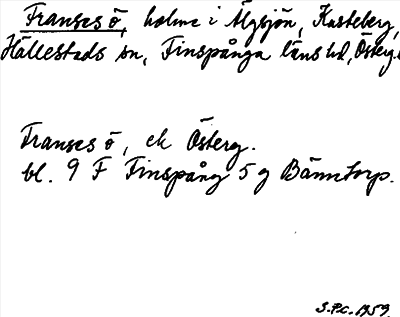 Franses ö, holme i Älgsjön, Kasteberg,
Hällestads sn, Finspånga läns hd, Österg.
Franses ö, ek Österg.
bl. 9 F Finspång 5 g Bänntorp.
S.P.C. 1959.